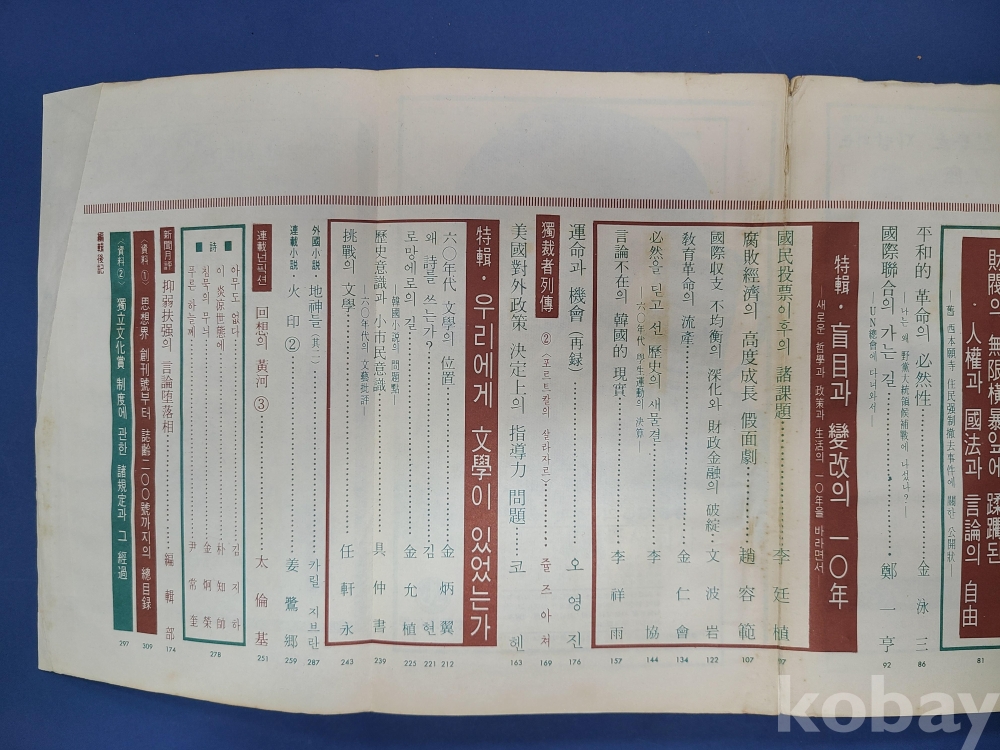 財閥의 無限橫暴앞에 蹂躙된
·人權과 國法과 言論의 自由
—舊 西本願寺 住民强制撤去事件에 關한 公開狀—
81
平和的 革命의 必然性
—나는 왜 野黨大統領候補戰에 나섰나?—
金泳三
86
國際聯合의 가는 길
—UN總會에 다녀와서—
鄭一亨
92
特輯·盲目과 變改의 一〇年
—새로운 哲學과 政策과 生活의 一〇年을 바라면서
國民投票이후의 諸課題
李廷植
97
腐敗經濟의 高度成長 假面劇
趙容範
107
國際收支 不均衡의 深化와 財政金融의 破綻
文波岩
122
敎育革命의 流產
金仁會
134
必然을 딛고 선 歷史의 새물결
—六〇年代 學生運動의 決算—
李協
144
言論不在의 韓國的 現實
李祥雨
157
運命과 機會 (再錄)
오영진
176
獨裁者列傳
② 〈포르트칼의 살라자르〉
쥴즈 아처
169
美國對外政策 決定上의 指導力 問題
코헨
163
特輯·우리에게 文學이 있었는가
六〇年代 文學의 位置
金炳翼
212
왜 詩를 쓰는가?
김현
221
로망에로의 길
—韓國小說의 問題點
金允植
225
歷史意識과 小市民意識
—六〇年代의 文藝批評
具仲書
239
挑戰의 文學
任軒永
243
外國小說·地神들(其二)
카릴 지브란
287
連載小說·火印 ②
姜鷺鄕
259
連載넌픽션
回想의 黃河 ③
太倫基
251
■ 詩 ■
아무도 없다
김지하
이 炎凉世態에
朴知帥
침묵의 무늬
金炯榮
푸른 하늘께
尹常奎
278
新聞月評
抑弱扶强의 言論墮落相
編輯部
174
〈資料 ①〉 思想界 創刊號부터 誌齡二〇〇號까지의 總目錄
309
〈資料 ②〉 獨立文化賞 制度에 관한 諸規定과 그 經過
297
編輯後記
kobay